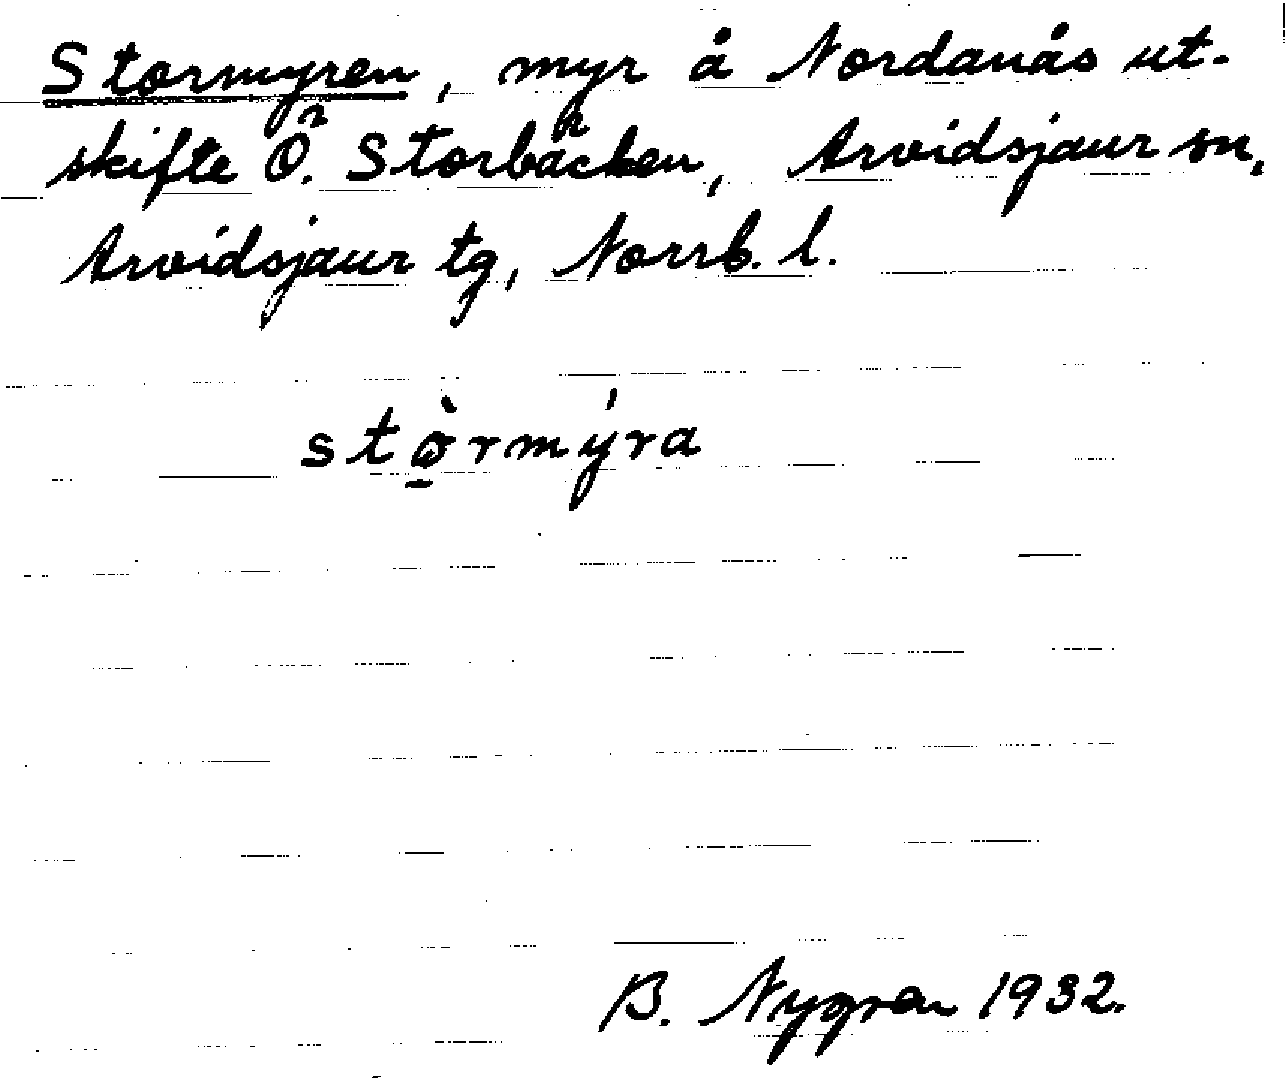 Stormyren, myr å Nordanås ut-
skifte Ö. Storbäcken, Arvidsjaur sn,
Arvidsjaur tg, Norrb. l.
stò̱rmýra
B. Nygren 1932.